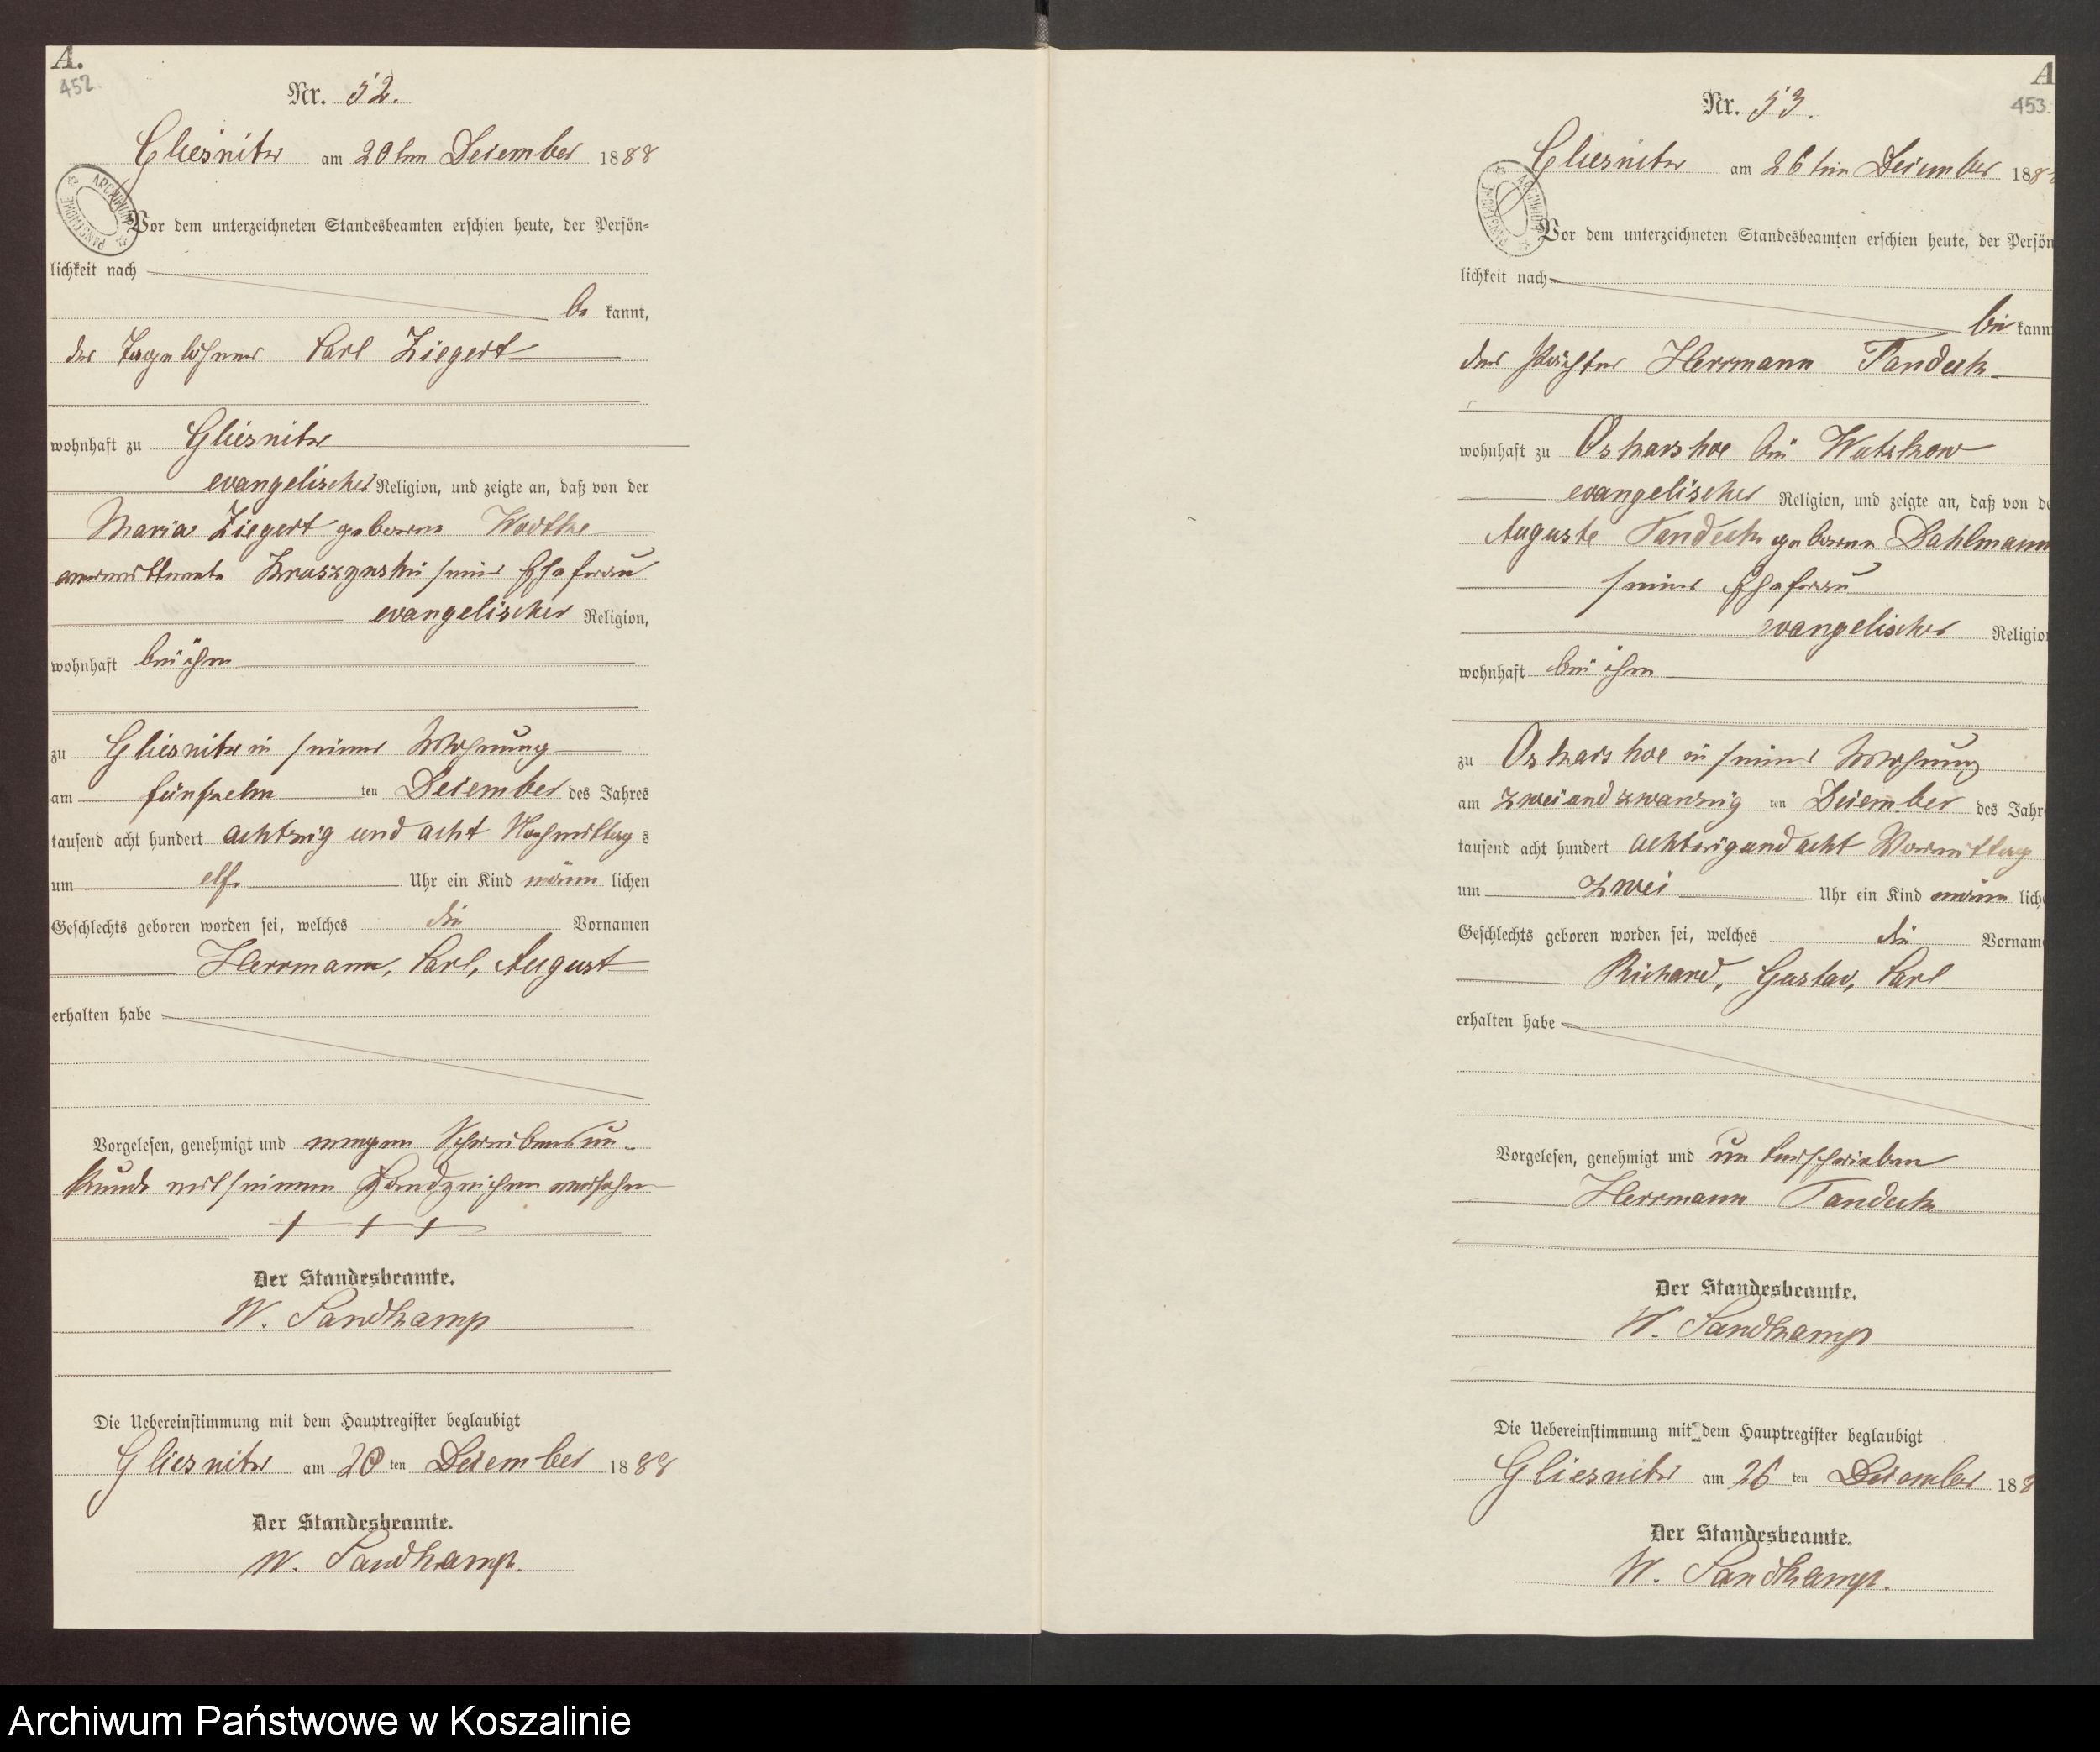 A.
452.
Nr. 52.
Gliesnitz am 20ten Dezember 1888
Vor dem unterzeichneten Standesbeamten erschien heute, der Persön-
lichkeit nach
be kannt,
der Tagelöhner Carl Ziegert
wohnhaft zu Gliesnitz
evangelischer Religion, und zeigte an, daß von der
Maria Ziegert geborene Wodtke
verwittwete Kruszynski seiner Ehefrau
evangelischer Religion,
wohnhaft bei ihm
zu Gliesnitz in seiner Wohnung
am fünfzehn ten Dezember des Jahres
tausend acht hundert achtzig und acht Nachmittag s
um elf Uhr ein Kind männ lichen
Geschlechts geboren worden sei, welches die Vornamen
Herrmann, Carl, August
erhalten habe
Vorgelesen, genehmigt und wegen Schreibensun-
kunde mit seinem Handzeichen versehen
+ + +
Der Standesbeamte.
W. Sandkamp
Die Uebereinstimmung mit dem Hauptregister beglaubigt
Gliesnitz am 20 ten Dezember 1888
Der Standesbeamte.
W. Sandkamp.
A
453.
Nr. 53.
Gliesnitz am 26ten Dezember 188
Vor dem unterzeichneten Standesbeamten erschien heute, der Persön
lichkeit nach
be kann
der Pächter Herrmann Tandeck
wohnhaft zu Oskarshoe bei Wutzkow
evangelischer Religion, und zeigte an, daß von de
Auguste Tandeck geborene Dahlmann
seiner Ehefrau
evangelischer Religio
wohnhaft bei ihm
zu Oskarshoe in seiner Wohnung
am zweiundzwanzig ten Dezember des Jahr
tausend acht hundert achtzig und acht Vormittag
um zwei Uhr ein Kind männ lich
Geschlechts geboren worden sei, welches die Vornam
Richard, Gustav, Carl
erhalten habe
Vorgelesen, genehmigt und unterschrieben
Herrmann Tandeck
Der Standesbeamte.
W. Sandkamp
Die Uebereinstimmung mit dem Hauptregister beglaubigt
Gliesnitz am 26 ten Dezember 188
Der Standesbeamte.
W. Sandkamp.
Archiwum Państwowe w Koszalinie